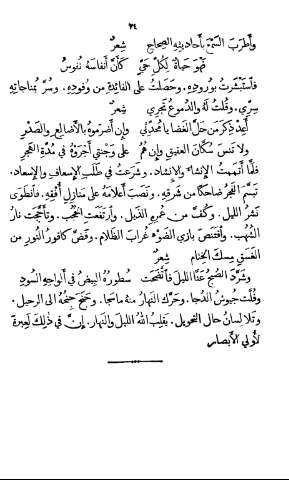 ٢٤
وأطرب السمع بأحاديثه الصحاح شعرٌ
فهو حياة لكل حيٍّ كأن أنفاسه نفوسُ
فاستبشرت بوروده. وحصلت على الفائدة من وفوده. وسرَّ بمناجاته
سرّي. وقلت له والدموع تجري شعرٌ
أعد ذكر من حلَّ الغضا يا محدّثي وإن أضرموه بالأضالع والصدر
ولا تنس سكّان العقيق وإن همُ على وجنتي أجروه في مدَّة الهجر
فلما أتممت الإنشاء والإنشاد. وشرعت في طلب الإسعاف والإسعاد.
تبسم الفجر ضاحكًا من شرقه. ونصب أعلامه على منازل أفقه. فانطوى
نشر الليل. وكفَّ من غربه الذيل. وارتفعت الحجب. وتأججت نار
الشهب. واقتنص بازي الضوء غراب الظلام. وفضَّ كافور النور من
الغسق مسك الختام شعرٌ
وشرَّد الصبح عنا الليل فاتضحت سطوره البيض في ألواحه السود
وقلت جيوش الدجا. وحرك النهار منه ما سجا. وجنح جنحه الى الرحيل.
وتلا لسان حال التحويل. يقلّب الله الليل والنهار. إنَّ في ذلك لعبرة
لأولي الأبصار